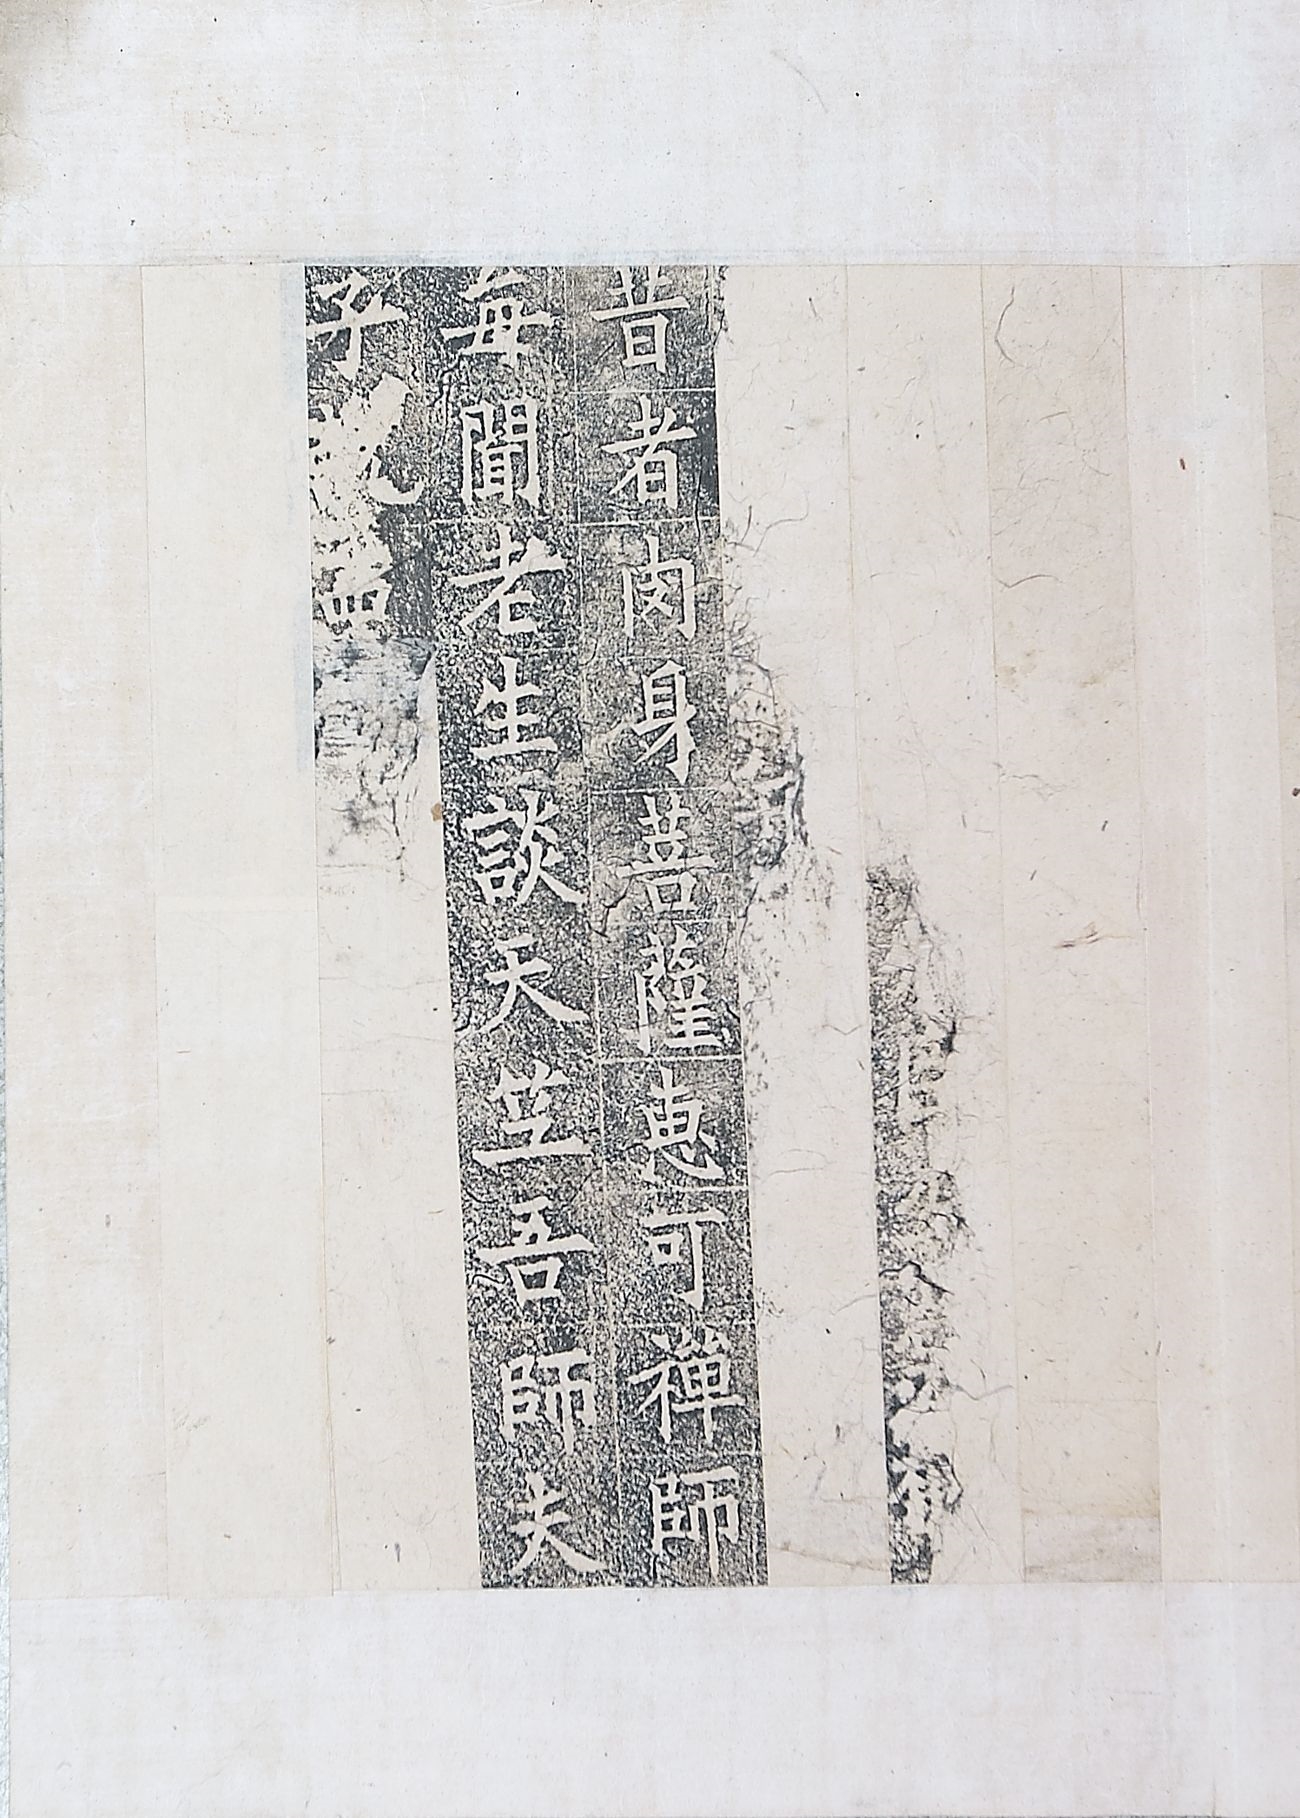 昔者肉身菩薩惠可禪師
每聞老生談天竺吾師夫
子
四